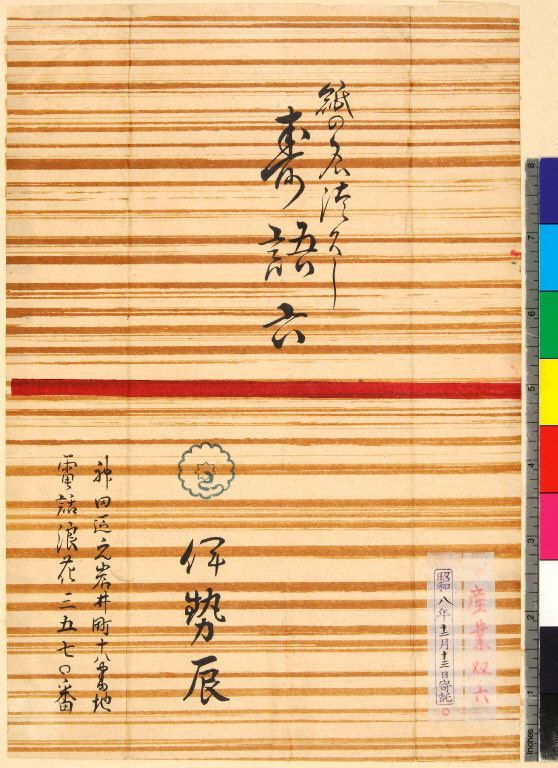 紙の名津久し
寿語六
産業双六
昭和八年十二月十三日寄託
伊勢辰
神田区元岩井町十八番地
電話浪花三五七〇番
8
7
6
5
4
3
2
1
Inches